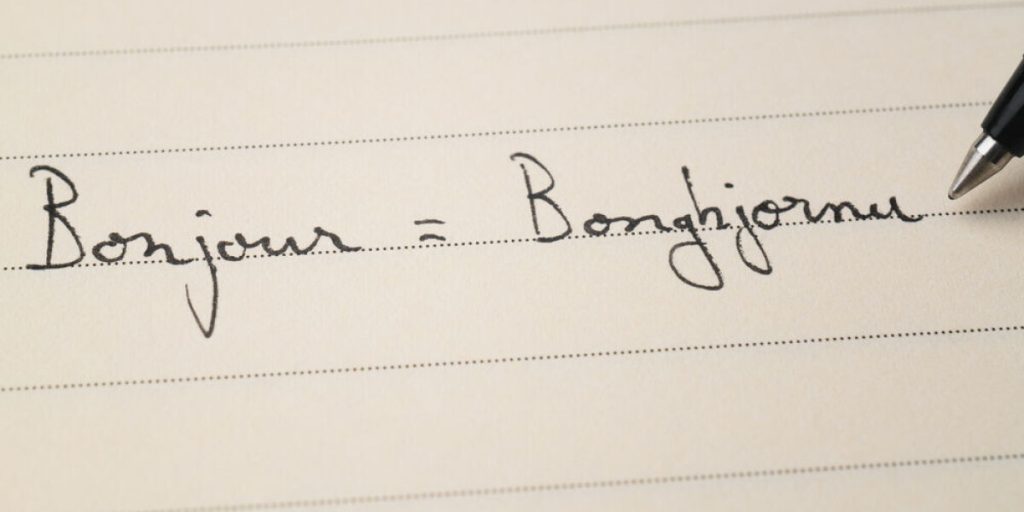 Bonjour = Bonghjornu